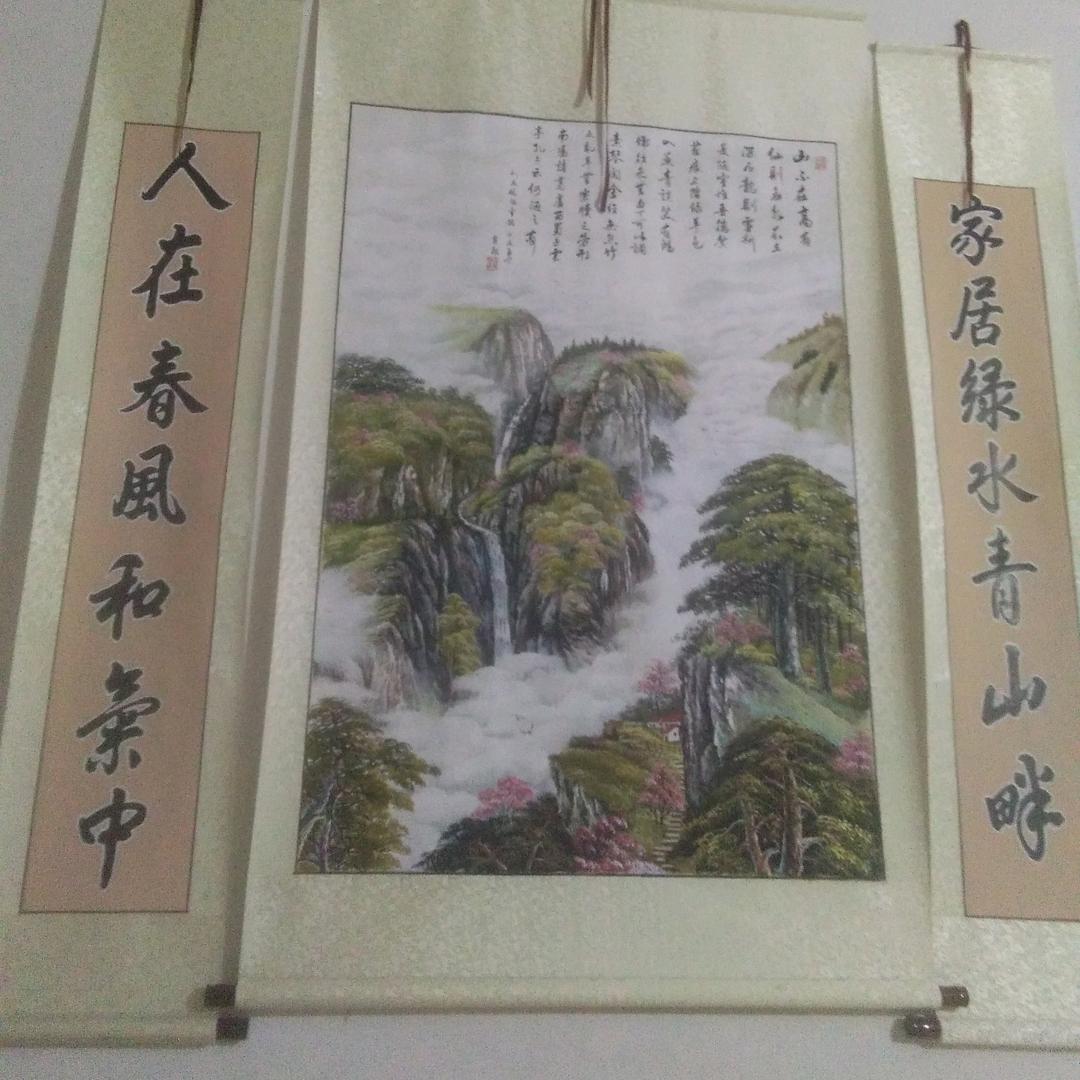 家居绿水青山畔
山不在高有
仙則名水不在
深有龍則靈斯
是陋室惟吾德馨
苔痕上階緑草色
入簾青談笑有鴻
儒往來無白丁可以調
素琴閲金經無絲竹
之亂耳無案牘之勞形
南陽諸葛廬西蜀子雲
亭孔子云何陋之有
人在春風和氣中